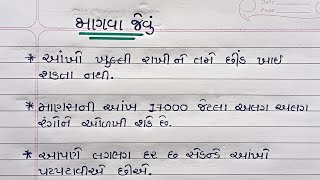 માગવા જેવું
* આંખો ખુલ્લી રાખીને તમે છીંક ખાઈ
શકતા નથી.
* માણસની આંખ 17000 જેટલા અલગ અલગ
રંગોને ઓળખી શકે છે.
* આપણે લગભગ દર છ સેકન્ડે આંખો
પટપટાવીએ છીએ.